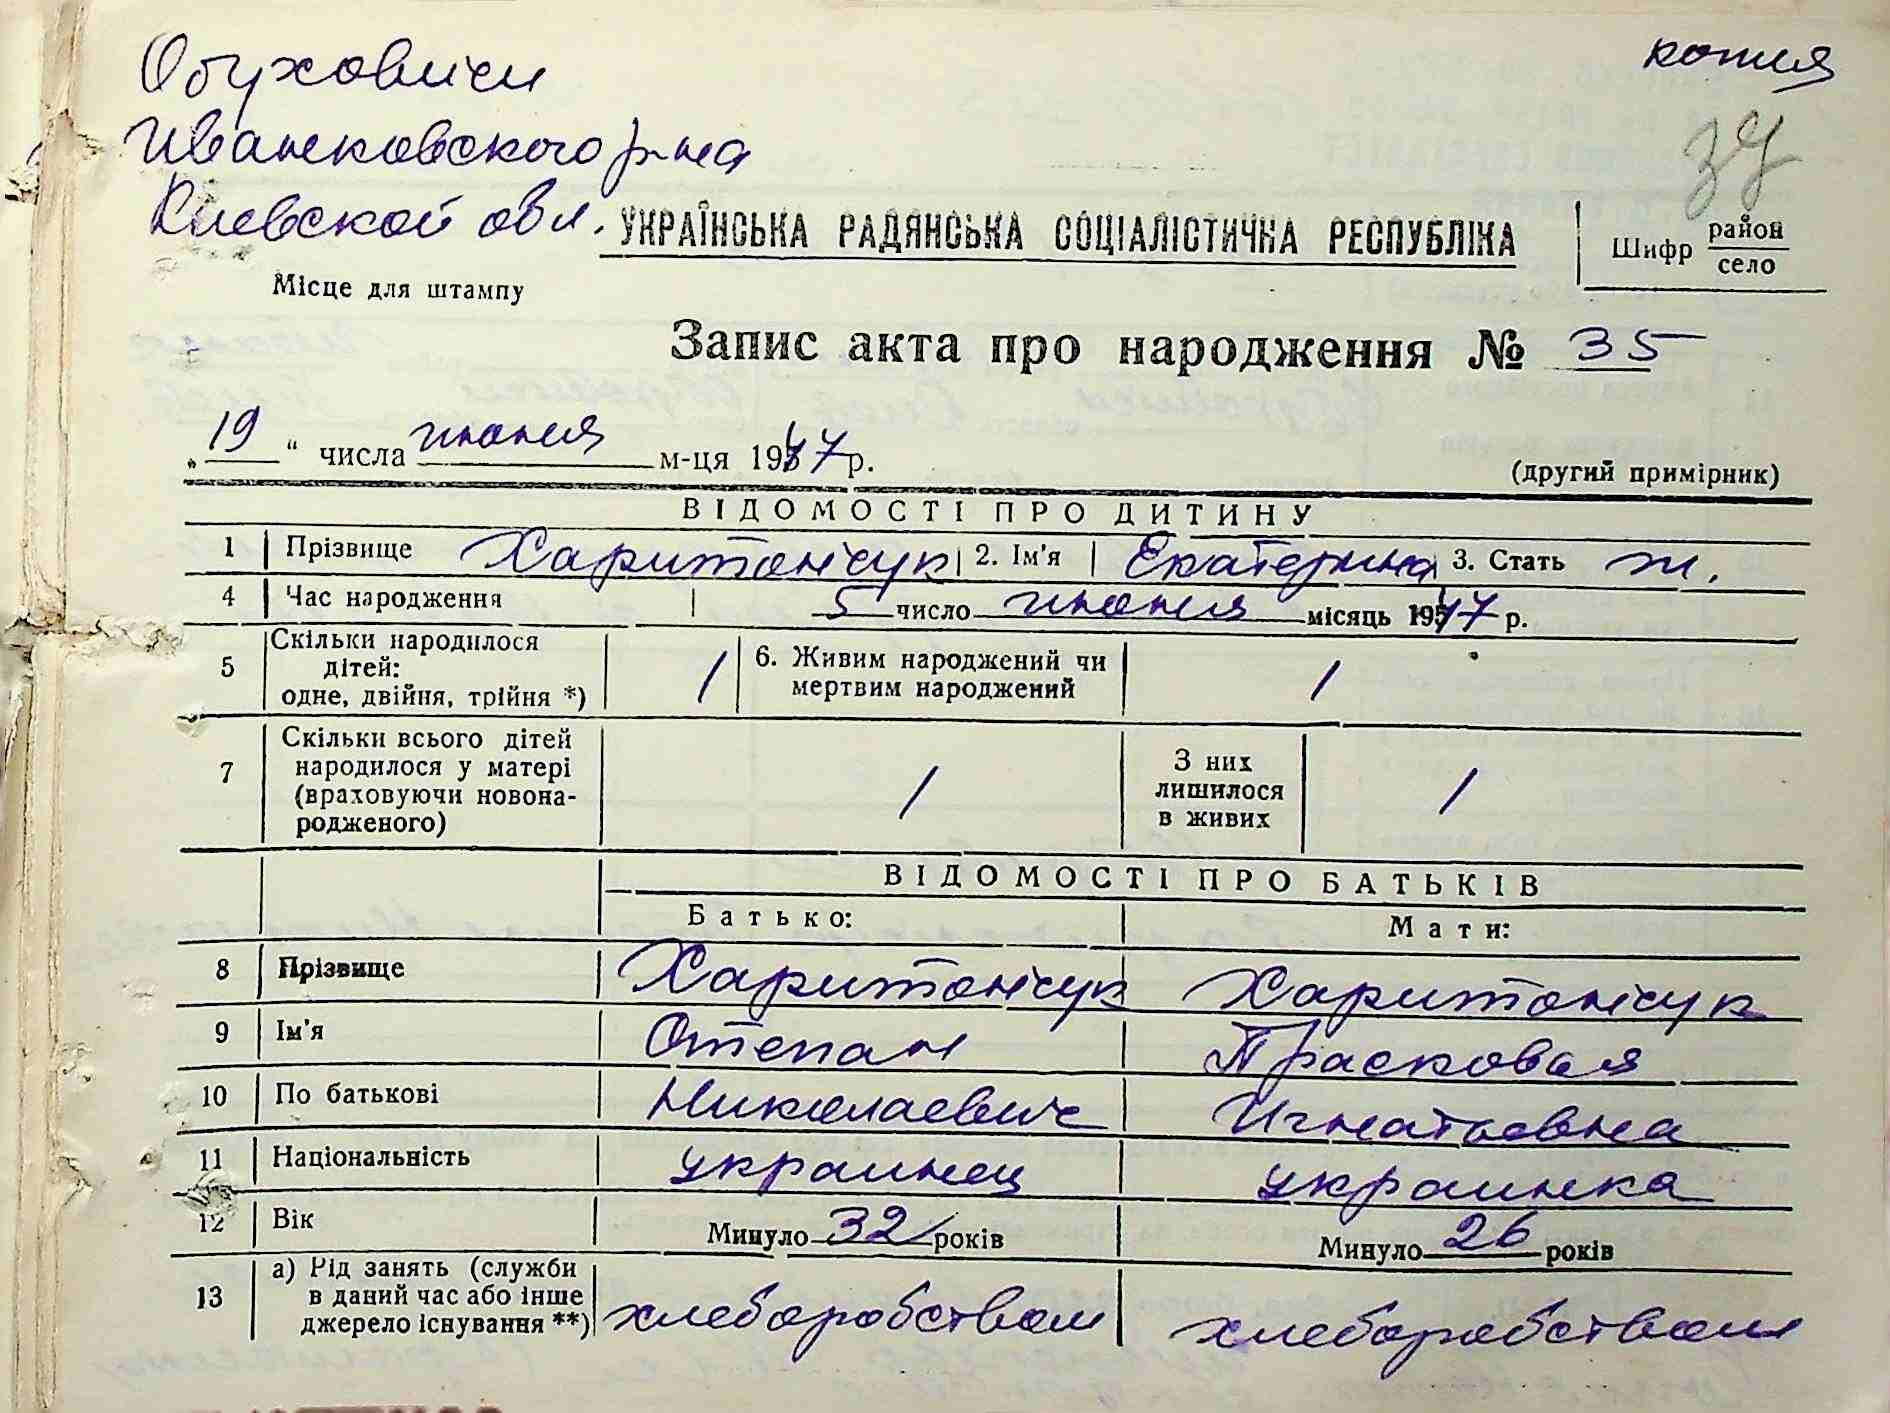 Обуховичи
Иванковского р-на
Киевской обл.
копия
37
УКРАЇНСЬКА РАДЯНСЬКА СОЦІАЛІСТИЧНА РЕСПУБЛІКА
Шифр район
село
Місце для штампу
Запис акта про народження № 35
„19“ числа июня м-ця 1947 р.
(другий примірник)
ВІДОМОСТІ ПРО ДИТИНУ
1 Прізвище Харитончук 2. Ім'я Екатерина 3. Стать ж.
4 Час народження 5 число июня місяць 1947 р.
5 Скільки народилося дітей: одне, двійня, трійня *) 1 6. Живим народжений чи мертвим народжений 1
7 Скільки всього дітей народилося у матері (враховуючи новонародженого) 1 З них лишилося в живих 1
ВІДОМОСТІ ПРО БАТЬКІВ
Батько: Мати:
8 Прізвище Харитончук Харитончук
9 Ім'я Степан Прасковья
10 По батькові Николаевич Игнатьевна
11 Національність украинец украинка
12 Вік Минуло 32 років Минуло 26 років
13 а) Рід занять (служби в даний час або інше джерело існування **) хлеборобством хлеборобством